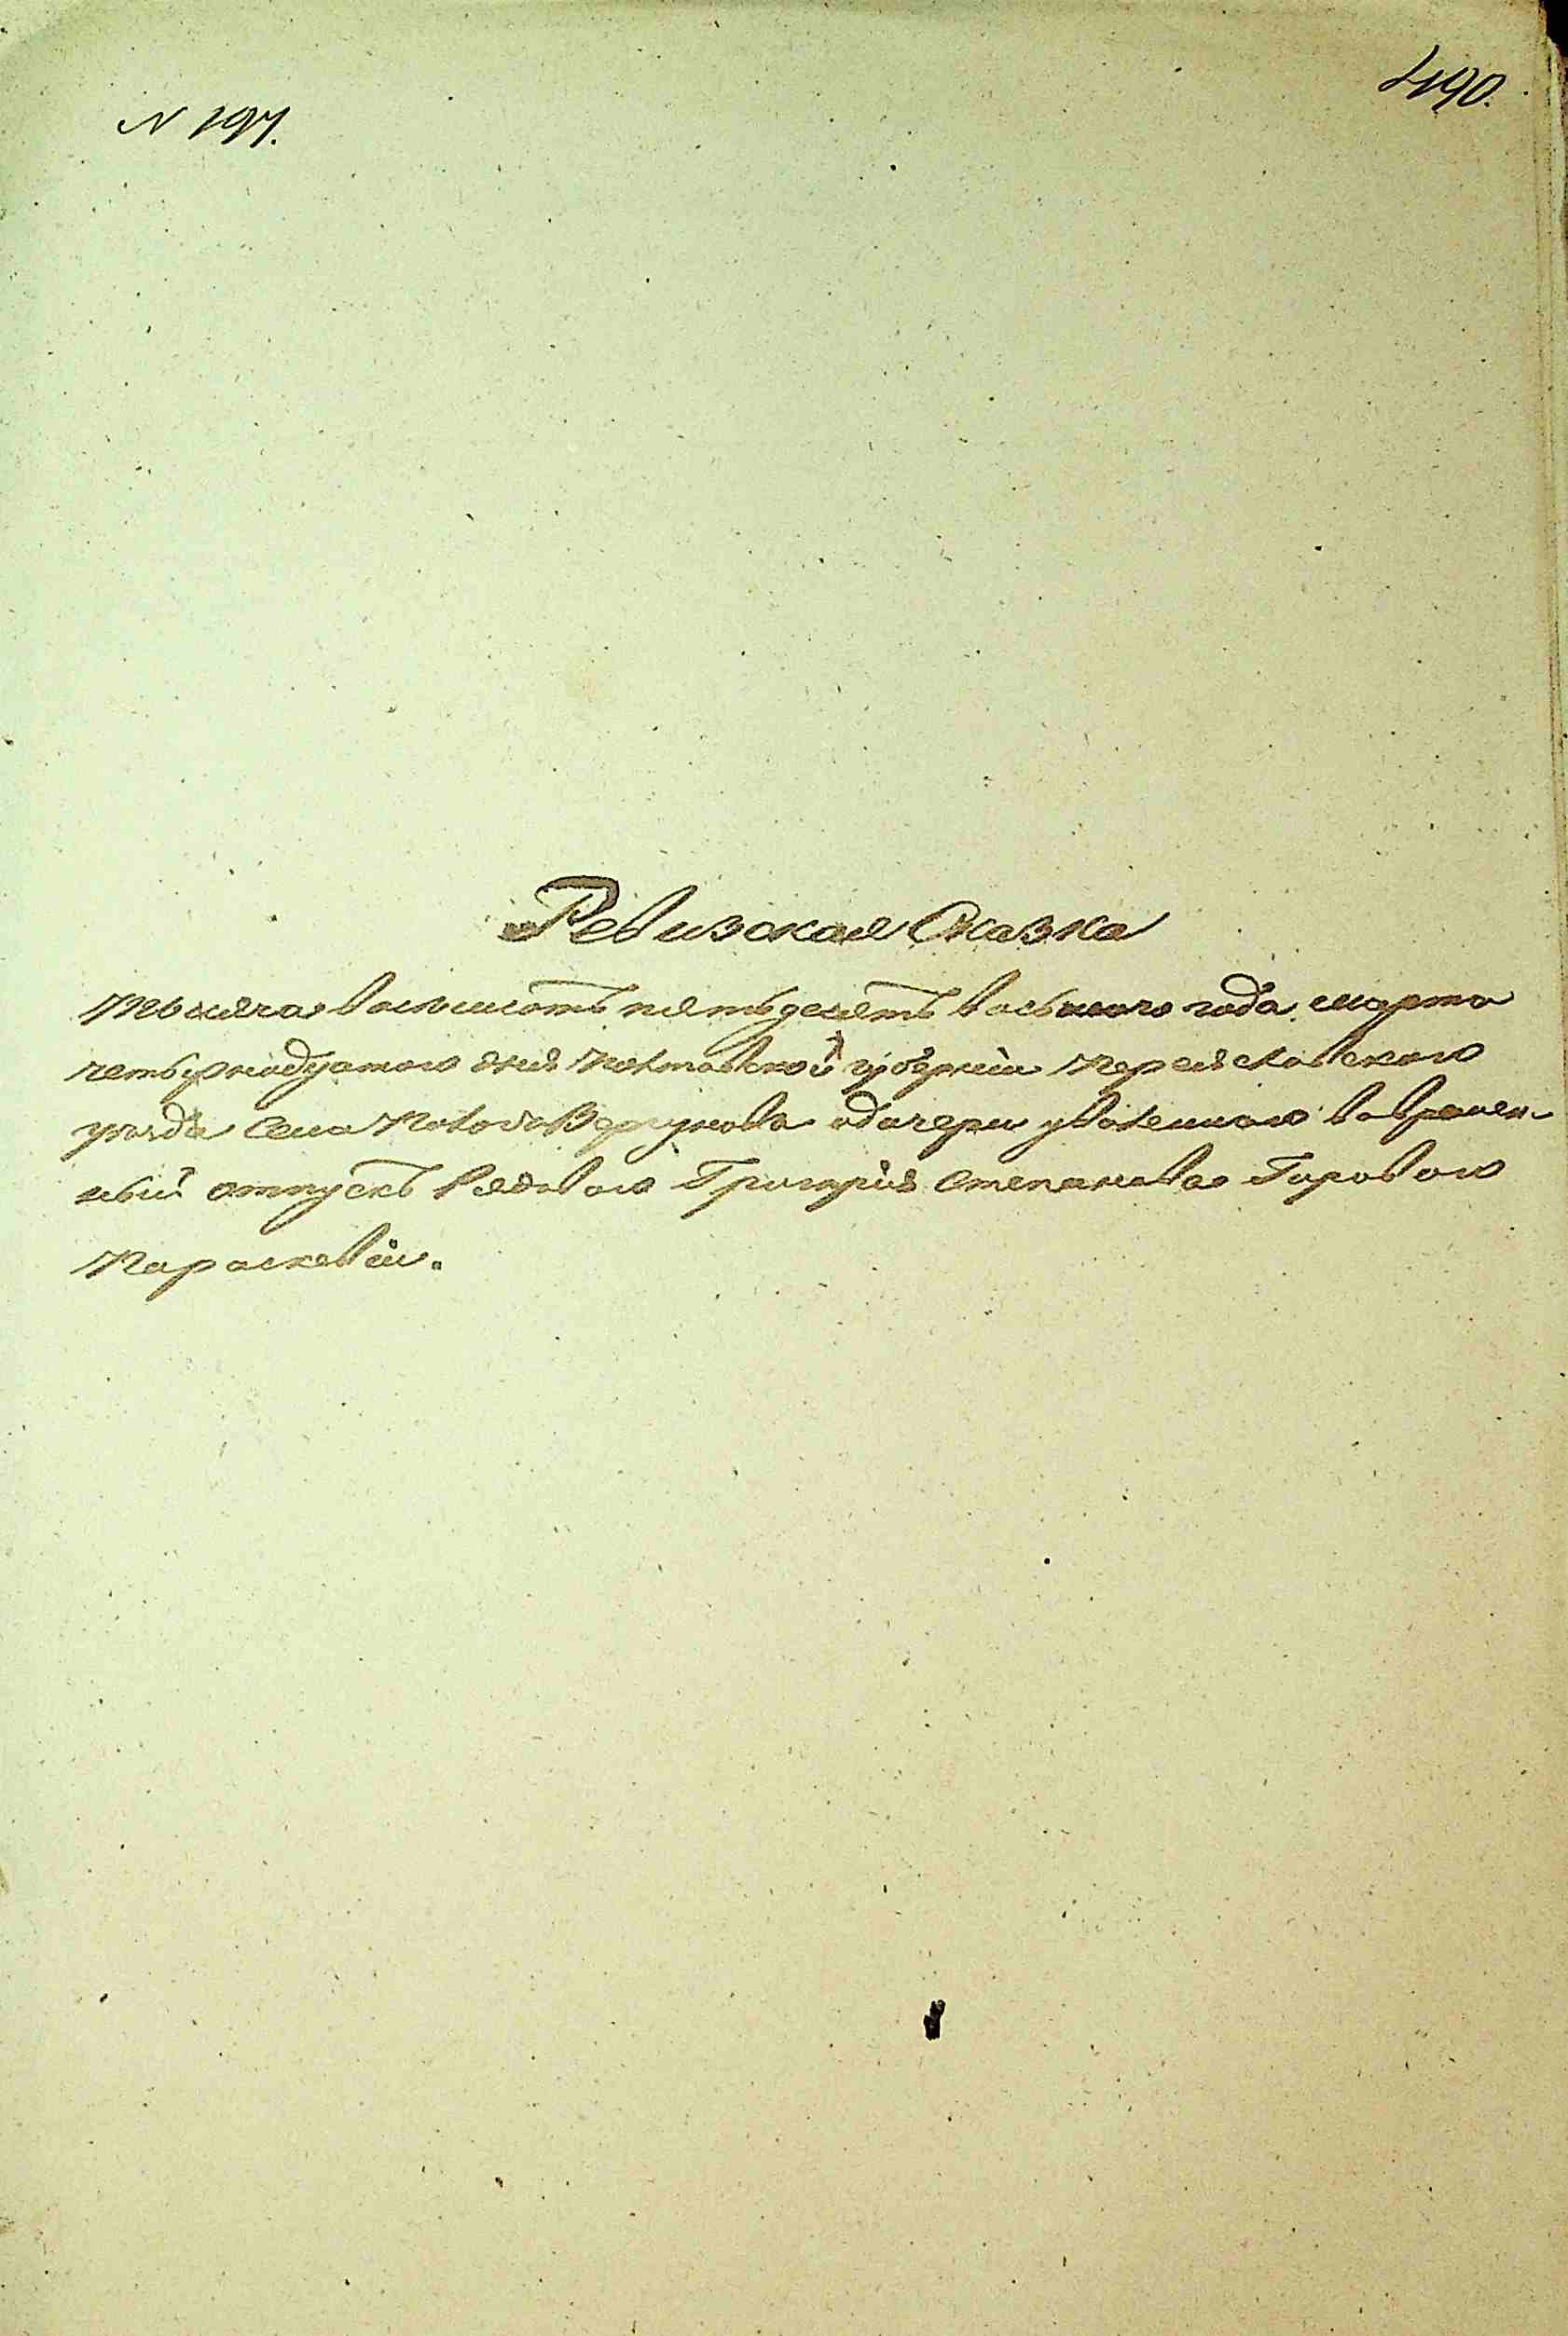 N 197.
490.
Ревизская Сказка
Тысяча восемьсотъ пятьдесятъ восьмого года марта
четырнадцатого дня Полтавской губерніи Переяславского
уезда Села одочери уволенного вовремен-
ный отпускъ Рядового Григорія Степанова Горового
Параскевіи.